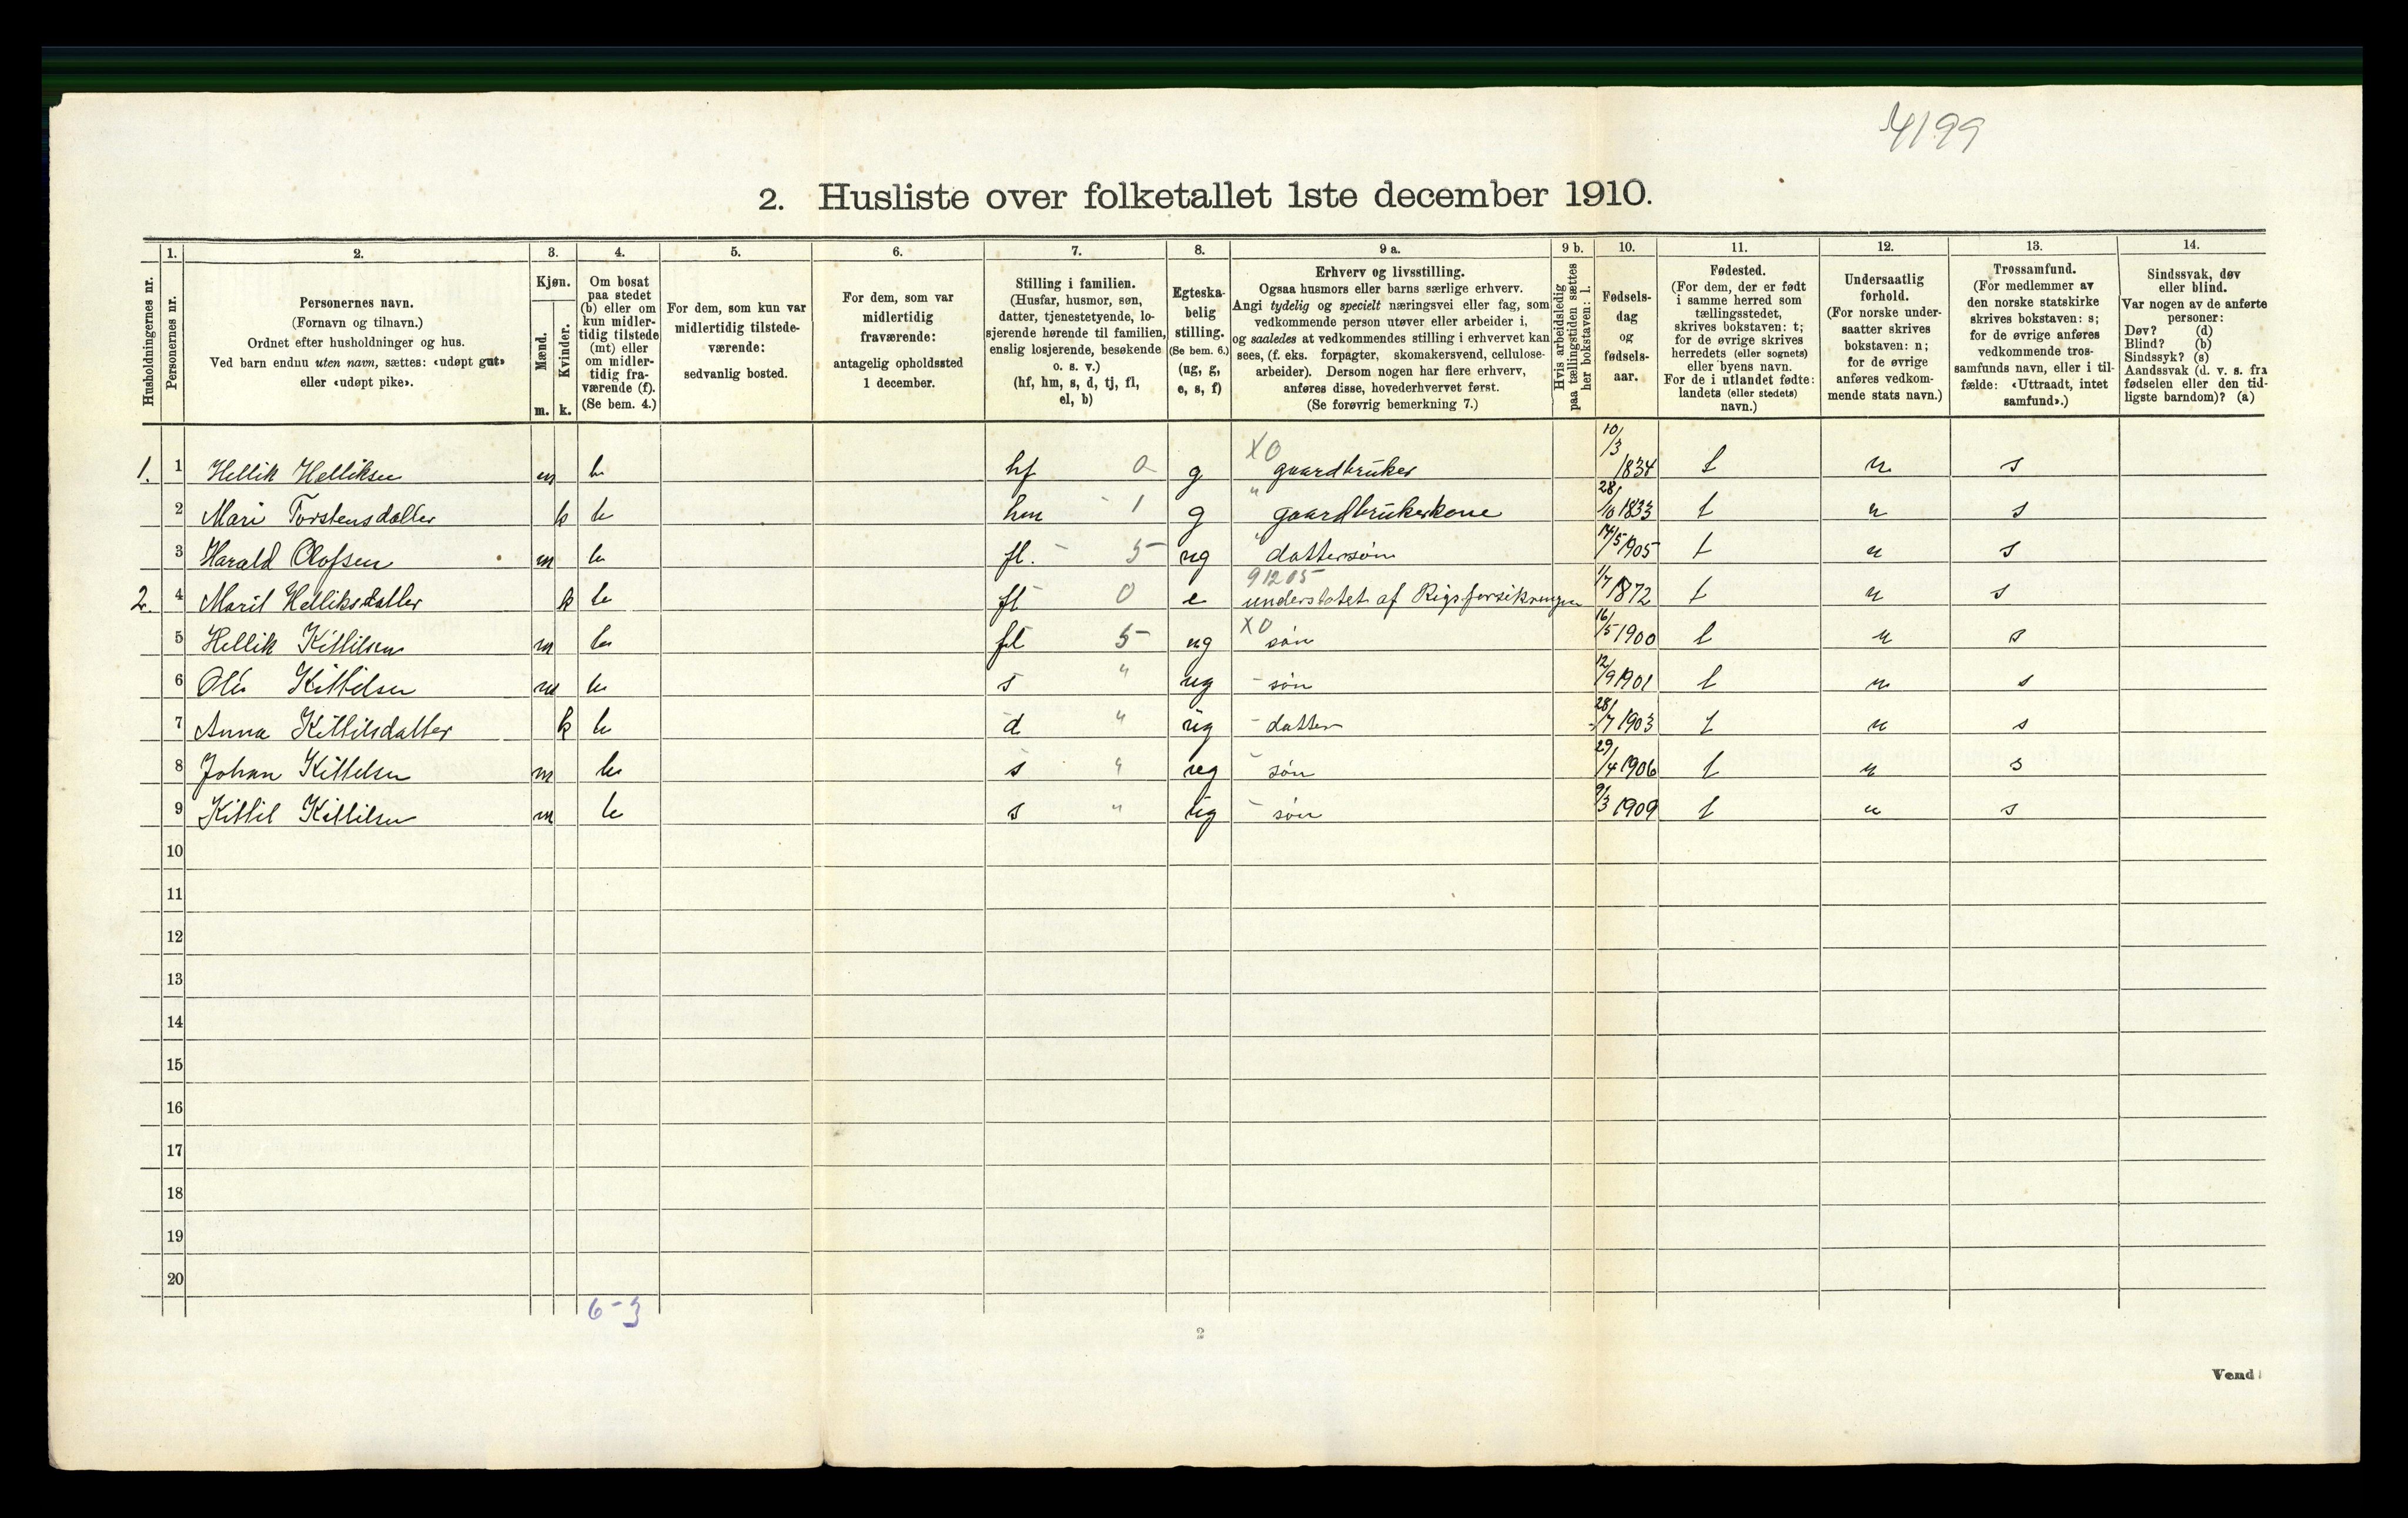 4199
2. Husliste over folketallet 1ste december 1910.
1. 2. 3. 4. 5. 6. 7. 8. 9 a. 9 b. 10. 11. 12. 13. 14.
Husholdningernes nr.
Personernes nr.
Personernes navn.
(Fornavn og tilnavn.)
Ordnet efter husholdninger og hus.
Ved barn endnu uten navn, sættes: «udøpt gut»
eller «udøpt pike».
Kjøn.
Mænd.
Kvinder.
m. k.
Om bosat
paa stedet
(b) eller om
kun midler-
tidig tilstede
(mt) eller
om midler-
tidig fra-
værende (f).
(Se bem. 4.)
For dem, som kun var
midlertidig tilstede-
værende:
sedvanlig bosted.
For dem, som var
midlertidig
fraværende:
antagelig opholdssted
1 december.
Stilling i familien.
(Husfar, husmor, søn,
datter, tjenestetyende, lo-
sjerende hørende til familien,
enslig losjerende, besøkende
o. s. v.)
(hf, hm, s, d, tj, fl,
el, b)
Egteska-
belig
stilling.
(Se bem. 6.)
(ug, g,
e, s, f)
Erhverv og livsstilling.
Ogsaa husmors eller barns særlige erhverv.
Angi tydelig og specielt næringsvei eller fag, som
vedkommende person utøver eller arbeider i,
og saaledes at vedkommendes stilling i erhvervet kan
sees, (f. eks. forpagter, skomakersvend, cellulose-
arbeider). Dersom nogen har flere erhverv,
anføres disse, hovederhvervet først.
(Se forøvrig bemerkning 7.)
Hvis arbeidsledig
paa tællingstiden sættes
her bokstaven: l.
Fødsels-
dag
og
fødsels-
aar.
Fødested.
(For dem, der er født
i samme herred som
tællingsstedet,
skrives bokstaven: t;
for de øvrige skrives
herredets (eller sognets)
eller byens navn.
For de i utlandet fødte:
landets (eller stedets)
navn.)
Undersaatlig
forhold.
(For norske under-
saatter skrives
bokstaven: n;
for de øvrige
anføres vedkom-
mende stats navn.)
Trossamfund.
(For medlemmer av
den norske statskirke
skrives bokstaven: s;
for de øvrige anføres
vedkommende tros-
samfunds navn, eller i til-
fælde: «Uttraadt, intet
samfund».)
Sindssvak, døv
eller blind.
Var nogen av de anførte
personer:
Døv? (d)
Blind? (b)
Sindssyk? (s)
Aandssvak (d. v. s. fra
fødselen eller den tid-
ligste barndom)? (a)
1. 1 Hellik Helliksen m b hf 0 g X0 gaardbruker 10/3 1834 t n s
2 Mari Torstensdatter k b hm 1 g " gaardbrukerkone 28/10 1833 t n s
3 Harald Olofsen m b fl. - 5 ug " dattersøn 14/5 1905 t n s
2. 4 Marit Helliksdatter k b fl 0 e 91205 understøtet af Rigsforsikringen 1/7 1872 t n s
5 Hellik Kittilsen m b fl 5 ug X0 søn 16/5 1900 t n s
6 Ole Kittilsen m b s " ug - søn 12/9 1901 t n s
7 Anna Kittilsdatter k b d " ug - datter 28/7 1903 t n s
8 Johan Kittelsen m b s " ug - søn 29/4 1906 t n s
9 Kittil Kittilsen m b s " ug - søn 9/3 1909 t n s
10
11
12
13
14
15
16
17
18
19
20
6-3
2
Vend